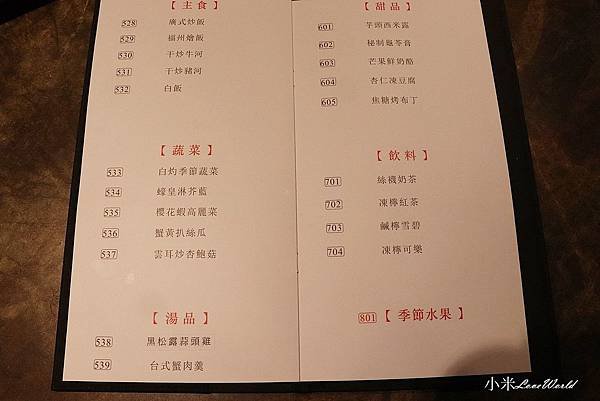 【主食】
528 廣式炒飯
529 福州燴飯
530 干炒牛河
531 干炒豬河
532 白飯
【蔬菜】
533 白灼季節蔬菜
534 蠔皇淋芥藍
535 櫻花蝦高麗菜
536 蟹黃扒絲瓜
537 雲耳炒杏鮑菇
【湯品】
538 黑松露蒜頭雞
539 台式蟹肉羹
【甜品】
601 芋頭西米露
602 秘制龜苓膏
603 芒果鮮奶酪
604 杏仁凍豆腐
605 焦糖烤布丁
【飲料】
701 絲襪奶茶
702 凍檸紅茶
703 鹹檸雪碧
704 凍檸可樂
801【季節水果】
小米LoveWorld